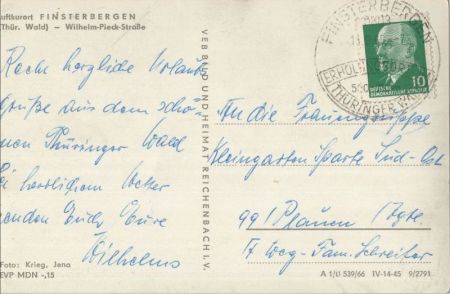 Luftkurort FINSTERBERGEN
(Thür. Wald) – Wilhelm-Pieck-Straße
Recht herzliche Urlaubs
grüße aus dem schö
nen Thüringer Wald
bei herrlichem Wetter
senden Euch Eure
Wilhelms
Foto: Krieg, Jena
EVP MDN -,15
VEB BILD UND HEIMAT REICHENBACH I. V.
FINSTERBERGEN
ERHOLUNGS
THÜRINGER WALD
DEUTSCHE DEMOKRATISCHE REPUBLIK
10
An die Frauengruppe
Kleingarten Sparte Süd-Ost
991 Plauen
7. Weg - Fam. Schreiber
A 1/U 539/66 IV-14-45 9/2791